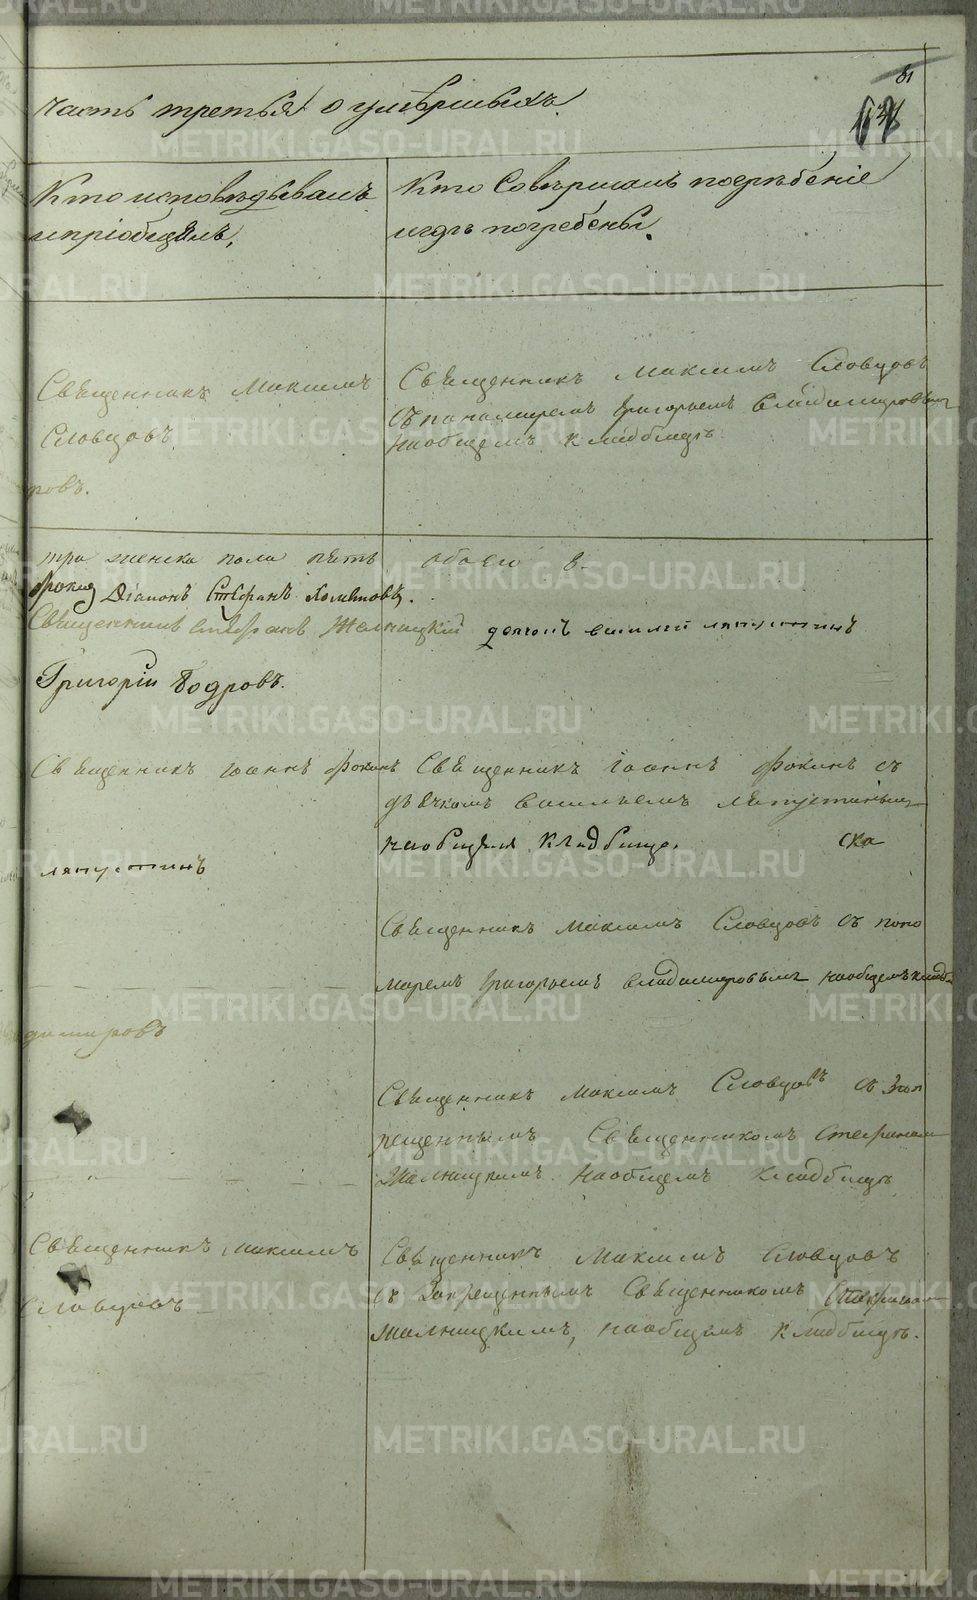 81
Часть третья о умершихъ
Кто исповѣдывалъ
и пріобщалъ,
Кто Совершалъ погребеніе
и гдѣ погребены.
Священникъ Максимъ
Словцовъ
ровъ.
Священникъ Максимъ Словцовъ
съ пономаремъ Григорьемъ Владимировымъ
на общемъ кладбищѣ
три женска пола пять обоего 8.
Діаконъ Стефанъ
Священникъ Стефанъ Жалницкій дьячокъ василий ляпустинъ
Григорій Бодровъ.
Священникъ Іоаннъ Фокинъ
ляпустинъ
Священникъ Іоаннъ Фокинъ съ
дьячкомъ Васильемъ Ляпустинымъ
на общемъ кладбище.
Священникъ Максимъ Словцовъ съ поно
маремъ Григорьемъ Владимировымъ на общемъ кладб
димировъ
Священникъ Максимъ Словцовъ съ Зап
рещеннымъ Священникомъ Стефаномъ
Жалницкимъ на общемъ кладбищѣ
Священникъ Максимъ
Словцовъ
Священникъ Максимъ Словцовъ
съ Запрещеннымъ Священникомъ Стефаномъ
Жалницкимъ, на общемъ кладбищѣ.
METRIKI.GASO-URAL.RU